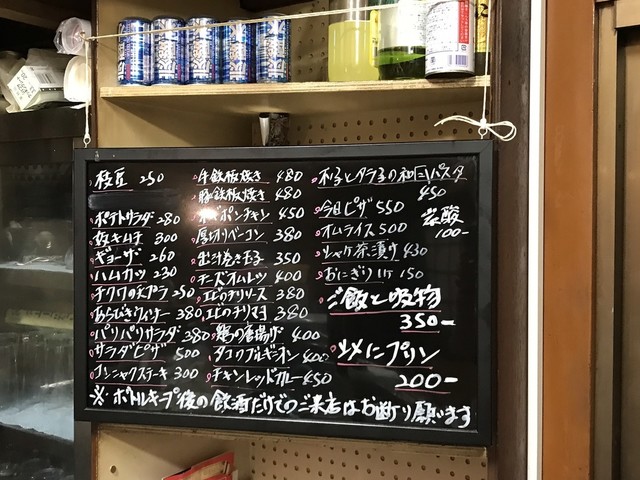 枝豆 250
ポテトサラダ 280
キムチ 300
ギョーザ 260
ハムカツ 230
チクワの天プラ 250
あらびきウィンナー 380
パリパリサラダ 380
サラダピザ 500
コンニャクステーキ 300
牛鉄板焼き 480
豚鉄板焼き 480
ポンチキン 450
厚切りベーコン 380
出汁巻き玉子 350
チーズオムレツ 400
エビのチリソース 380
エビのチリマヨ 380
鶏の唐揚げ 400
タコのブルギニオン 400
チキンレッドカレー 450
タラ子の和風パスタ
450
今日ピザ 550
炭酸
100-
オムライス 500
シャケ茶漬け 430
おにぎり1ケ 150
ご飯と吸物
350-
〆にプリン
200-
※ボトルキープ後の飲酒だけでのご来店はお断り願います